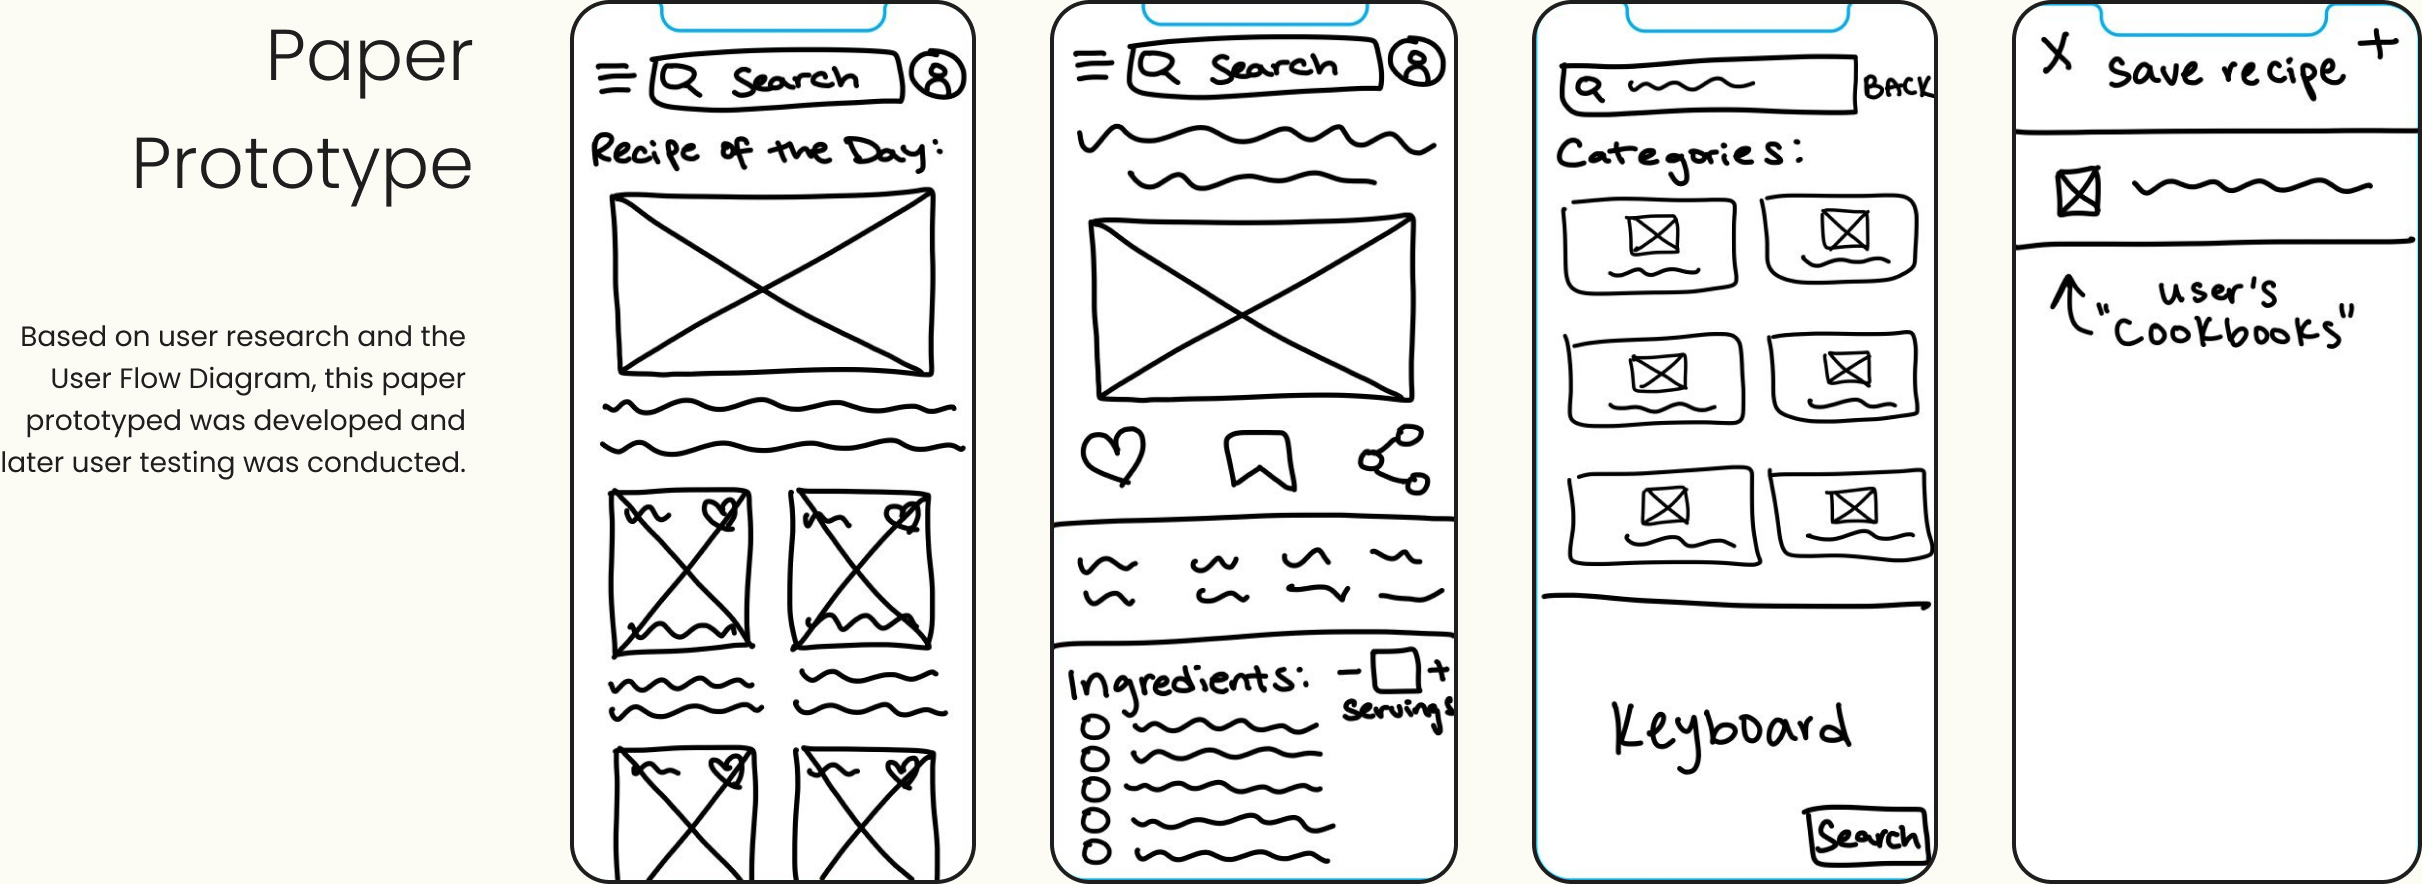 Paper
Prototype
Based on user research and the
User Flow Diagram, this paper
prototyped was developed and
later user testing was conducted.
Search
Recipe of the Day:
Search
Ingredients: - +
servings
BACK
Categories:
Keyboard
Search
X save recipe +
user's
"cookbooks"